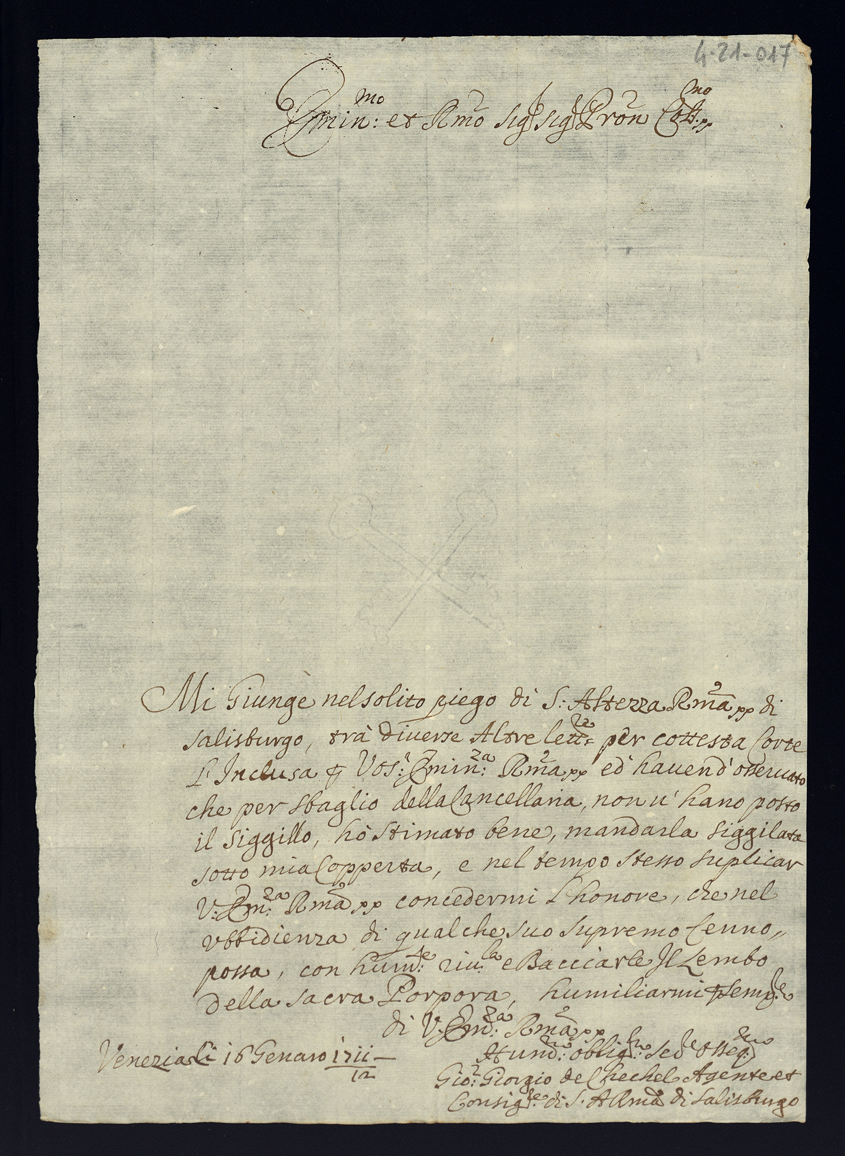 4-21-017
Emin:mo et Rmo Sigr Sigr Pron Coll:mo pp
Mi Giunge nel solito piego di S: Altezza Rma pp di
Salisburgo, trà diverse Altre lettre per cottesta Corte
L'Inclusa p Vos:a Emin:za Rma pp ed' havend' osservato
che per sbaglio della Cancellaria, non v' hano posto
il Siggillo, hò stimato bene, mandarla Siggilata
sotto mia Copperta, e nel tempo stesso suplicar
V: Em:za Rma pp concedermi l'honore, che nel
Vbbidienza di qualche suo supremo Cenno,,
possa, con hum:te e Bacciarle Il Lembo
della sacra Porpora, humiliarmi p sempre
di V: Em:za Rma pp
Venezia li 16 Genaro 1711/12
obblig:mo Osseq:mo
Gio: Giorgio de Chechel Agente et
Consig:re di S: A Rma di Salisburgo